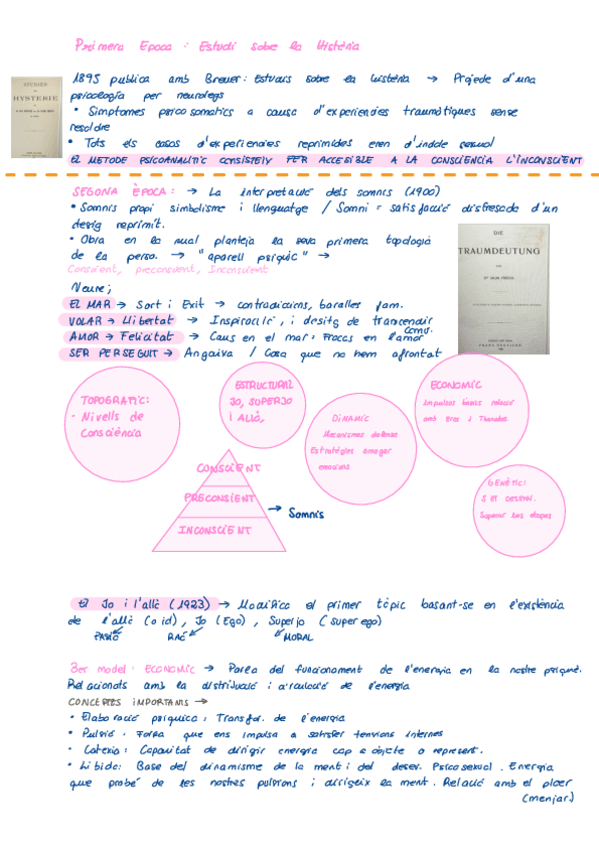 Primera Epoca : Estudi sobre la Histèria
STUDIEN
HYSTERIE
1895 publica amb Breuer: Estudis sobre la histèria → Projecte d'una
psicologia per neurolegs
• Simptomes psicosomatics a causa d'experiencies traumàtiques sense
resoldre
• Tots els casos d'experiencies reprimides eren d'indole sexual
EL METODE PSICOANALITIC CONSISTEIX FER ACCESIBLE A LA CONSCIÈNCIA L'INCONSCIENT
SEGONA ÈPOCA : → La interpretació dels somnis (1900)
• Somnis propi simbolisme i llenguatge / Somni = satisfacció disfresada d'un
desig reprimit.
• Obra en la qual planteja la seva primera topologia
de la perso. → "aparell psíquic" →
Conscient, preconscient, Inconscient
DIE
TRAUMDEUTUNG
Veure;
EL MAR → Sort i Exit → contradiccions, baralles fam.
VOLAR → Llibertat → Inspiració, i desitg de trancendir
AMOR → Felicitat → Caus en el mar : Fracàs en l'amor
SER PERSEGUIT → Angoixa / Cosa que no hem afrontat
TOPOGRATIC:
- Nivells de
Consciència
ESTRUCTURAL
JO, SUPERJO
i ALLÒ,
DINAMIC
Mecanismes defensa
Estratègies amagar
emocions
ECONOMIC
Impulsos basics relació
amb Eros i Thanatos
GENÈTIC:
5 ET DESENV.
Superar les etapes
CONSCIENT
PRECONSCIENT
INCONSCIENT
→ Somnis
El Jo i l'allè (1923) → Modifica el primer tòpic basant-se en l'existència
de l'allè (o id), Jo (Ego), Superjo (super ego)
RAÓ
MORAL
3er model : ECONOMIC → Parla del funcionament de l'energia en la nostre psique.
Relacionats amb la distribució i circulació de l'energia
CONCEPTES IMPORTANTS →
• Elaboració psíquica : Transfor. de l'energia
• Pulsió : Força que ens impulsa a satisfer tensions internes
• Catexia : Capacitat de dirigir energia cap a objecte o represent.
• Libido : Base del dinamisme de la ment i del desev. Psicosexual. Energia
que probé de les nostres pulsions i dirigeix la ment. Relació amb el plaer
(menjar.)